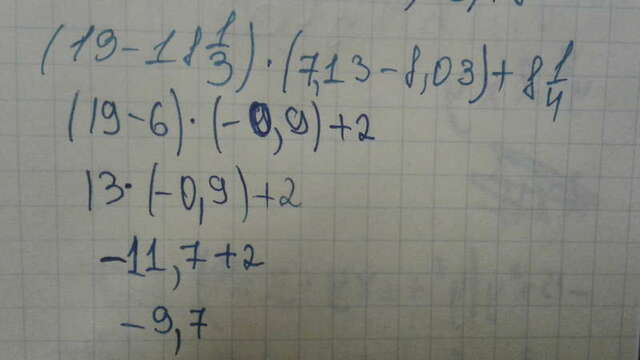 (19-18/3)·(7,13-8,03)+8/4
(19-6)·(-0,9)+2
13·(-0,9)+2
-11,7+2
-9,7